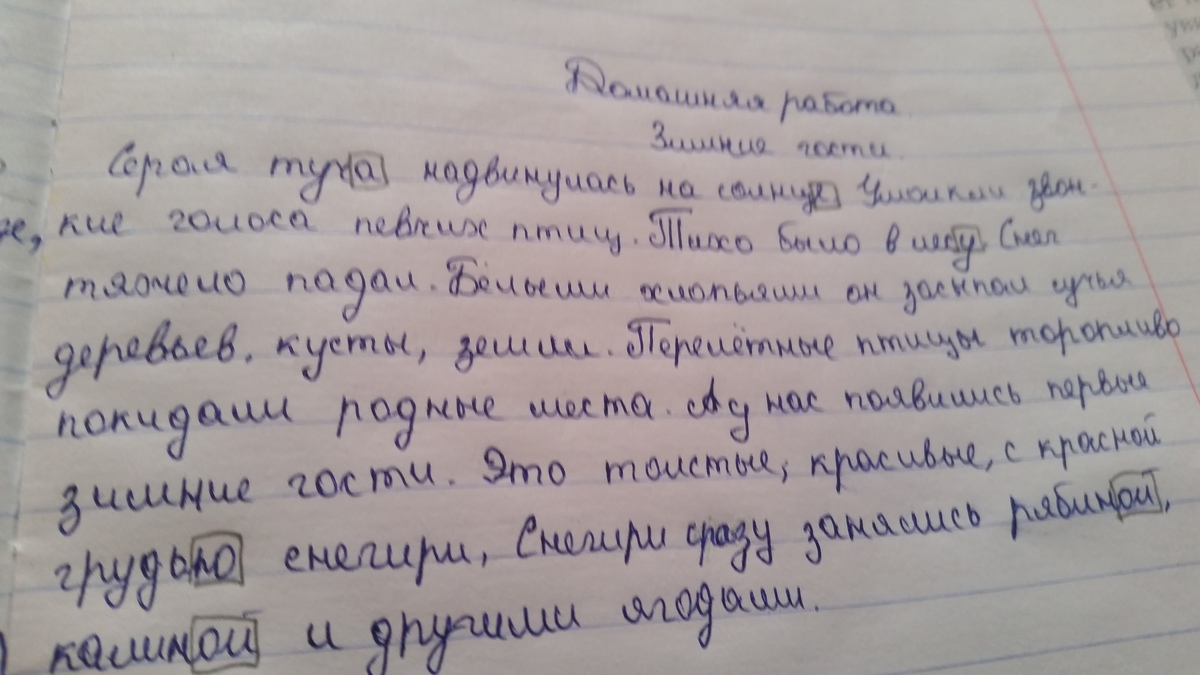 Домашняя работа
Зимние гости.
Серая туча надвинулась на солнце Умолкли звон-
кие голоса певчих птиц. Тихо было в лесу. Снег
тяжело падал. Белыми хлопьями он засыпал сучья
деревьев, кусты, землю. Перелётные птицы торопливо
покидали родные места. А у нас появились первые
зимние гости. Это толстые, красивые, с красной
грудью снегири, Снегири сразу занялись рябиной,
калиной и другими ягодами.